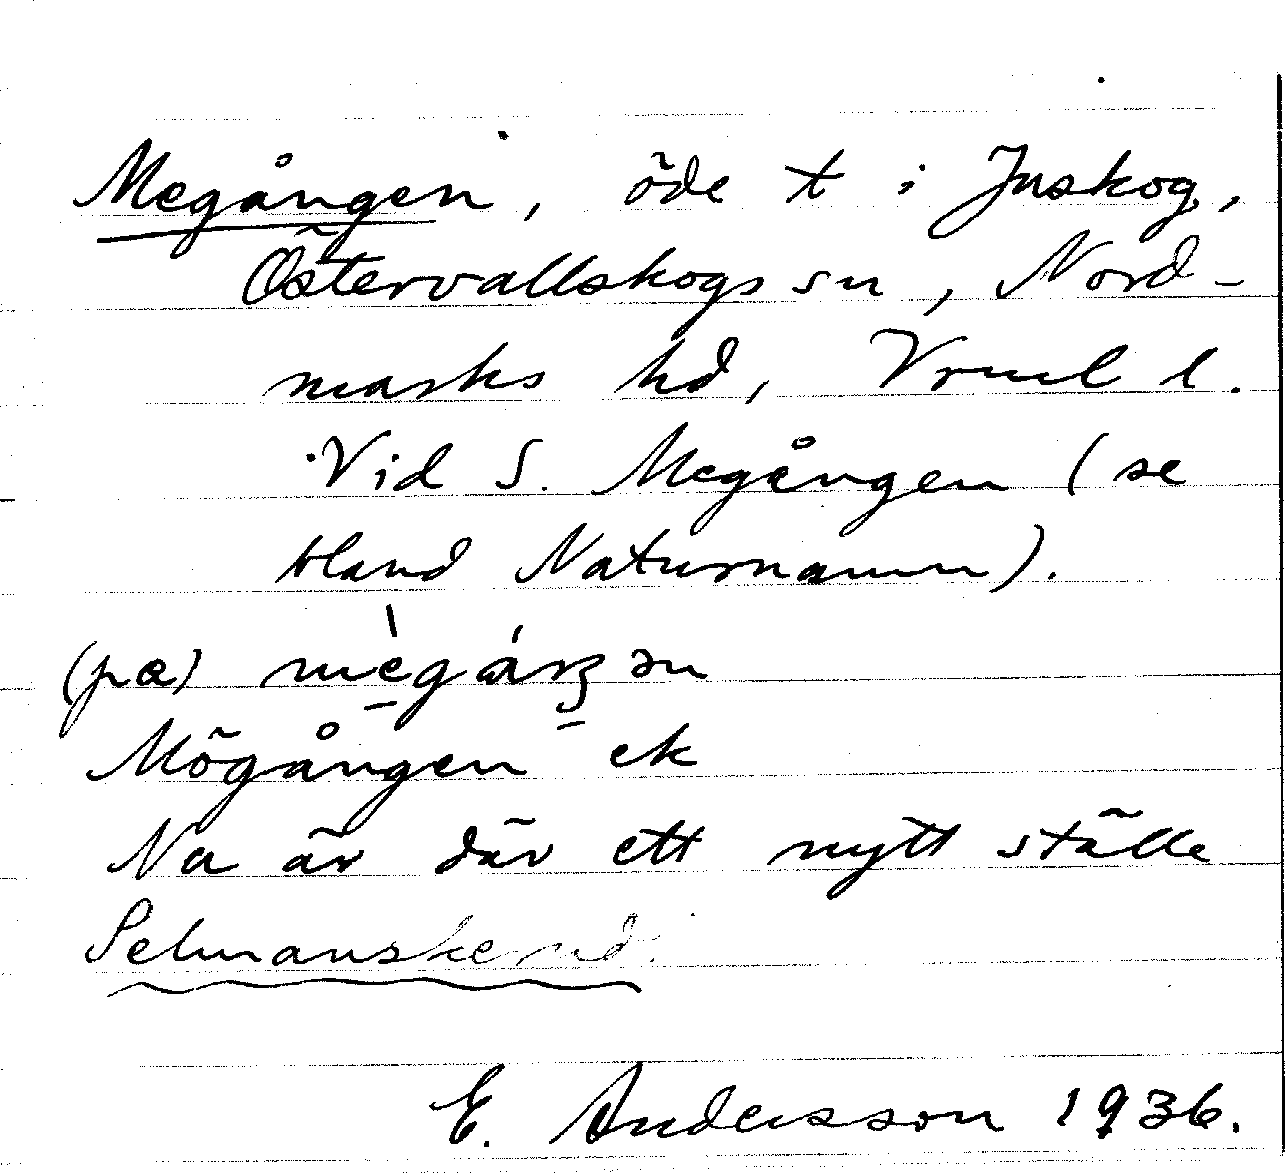 Megången, öde t i Juskog,
Östervallskogs sn, Nord-
marks hd, Vrml l.
Vid S. Megången (se
bland Naturnamn).
(pa)
Mögången ek
Na är där ett nytt ställe
E. Andersson 1936.